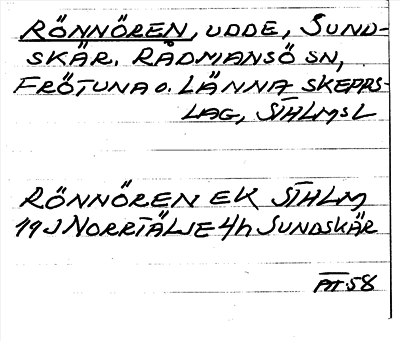 RÖNNÖREN, UDDE, SUND-
SKÄR. RÅDMANSÖ SN,
FRÖTUNA O. LÄNNA SKEPPS-
LAG, STHLMSL
RÖNNÖREN EK STHLM
19J NORRTÄLJE 4h SUNDSKÄR
PT.58